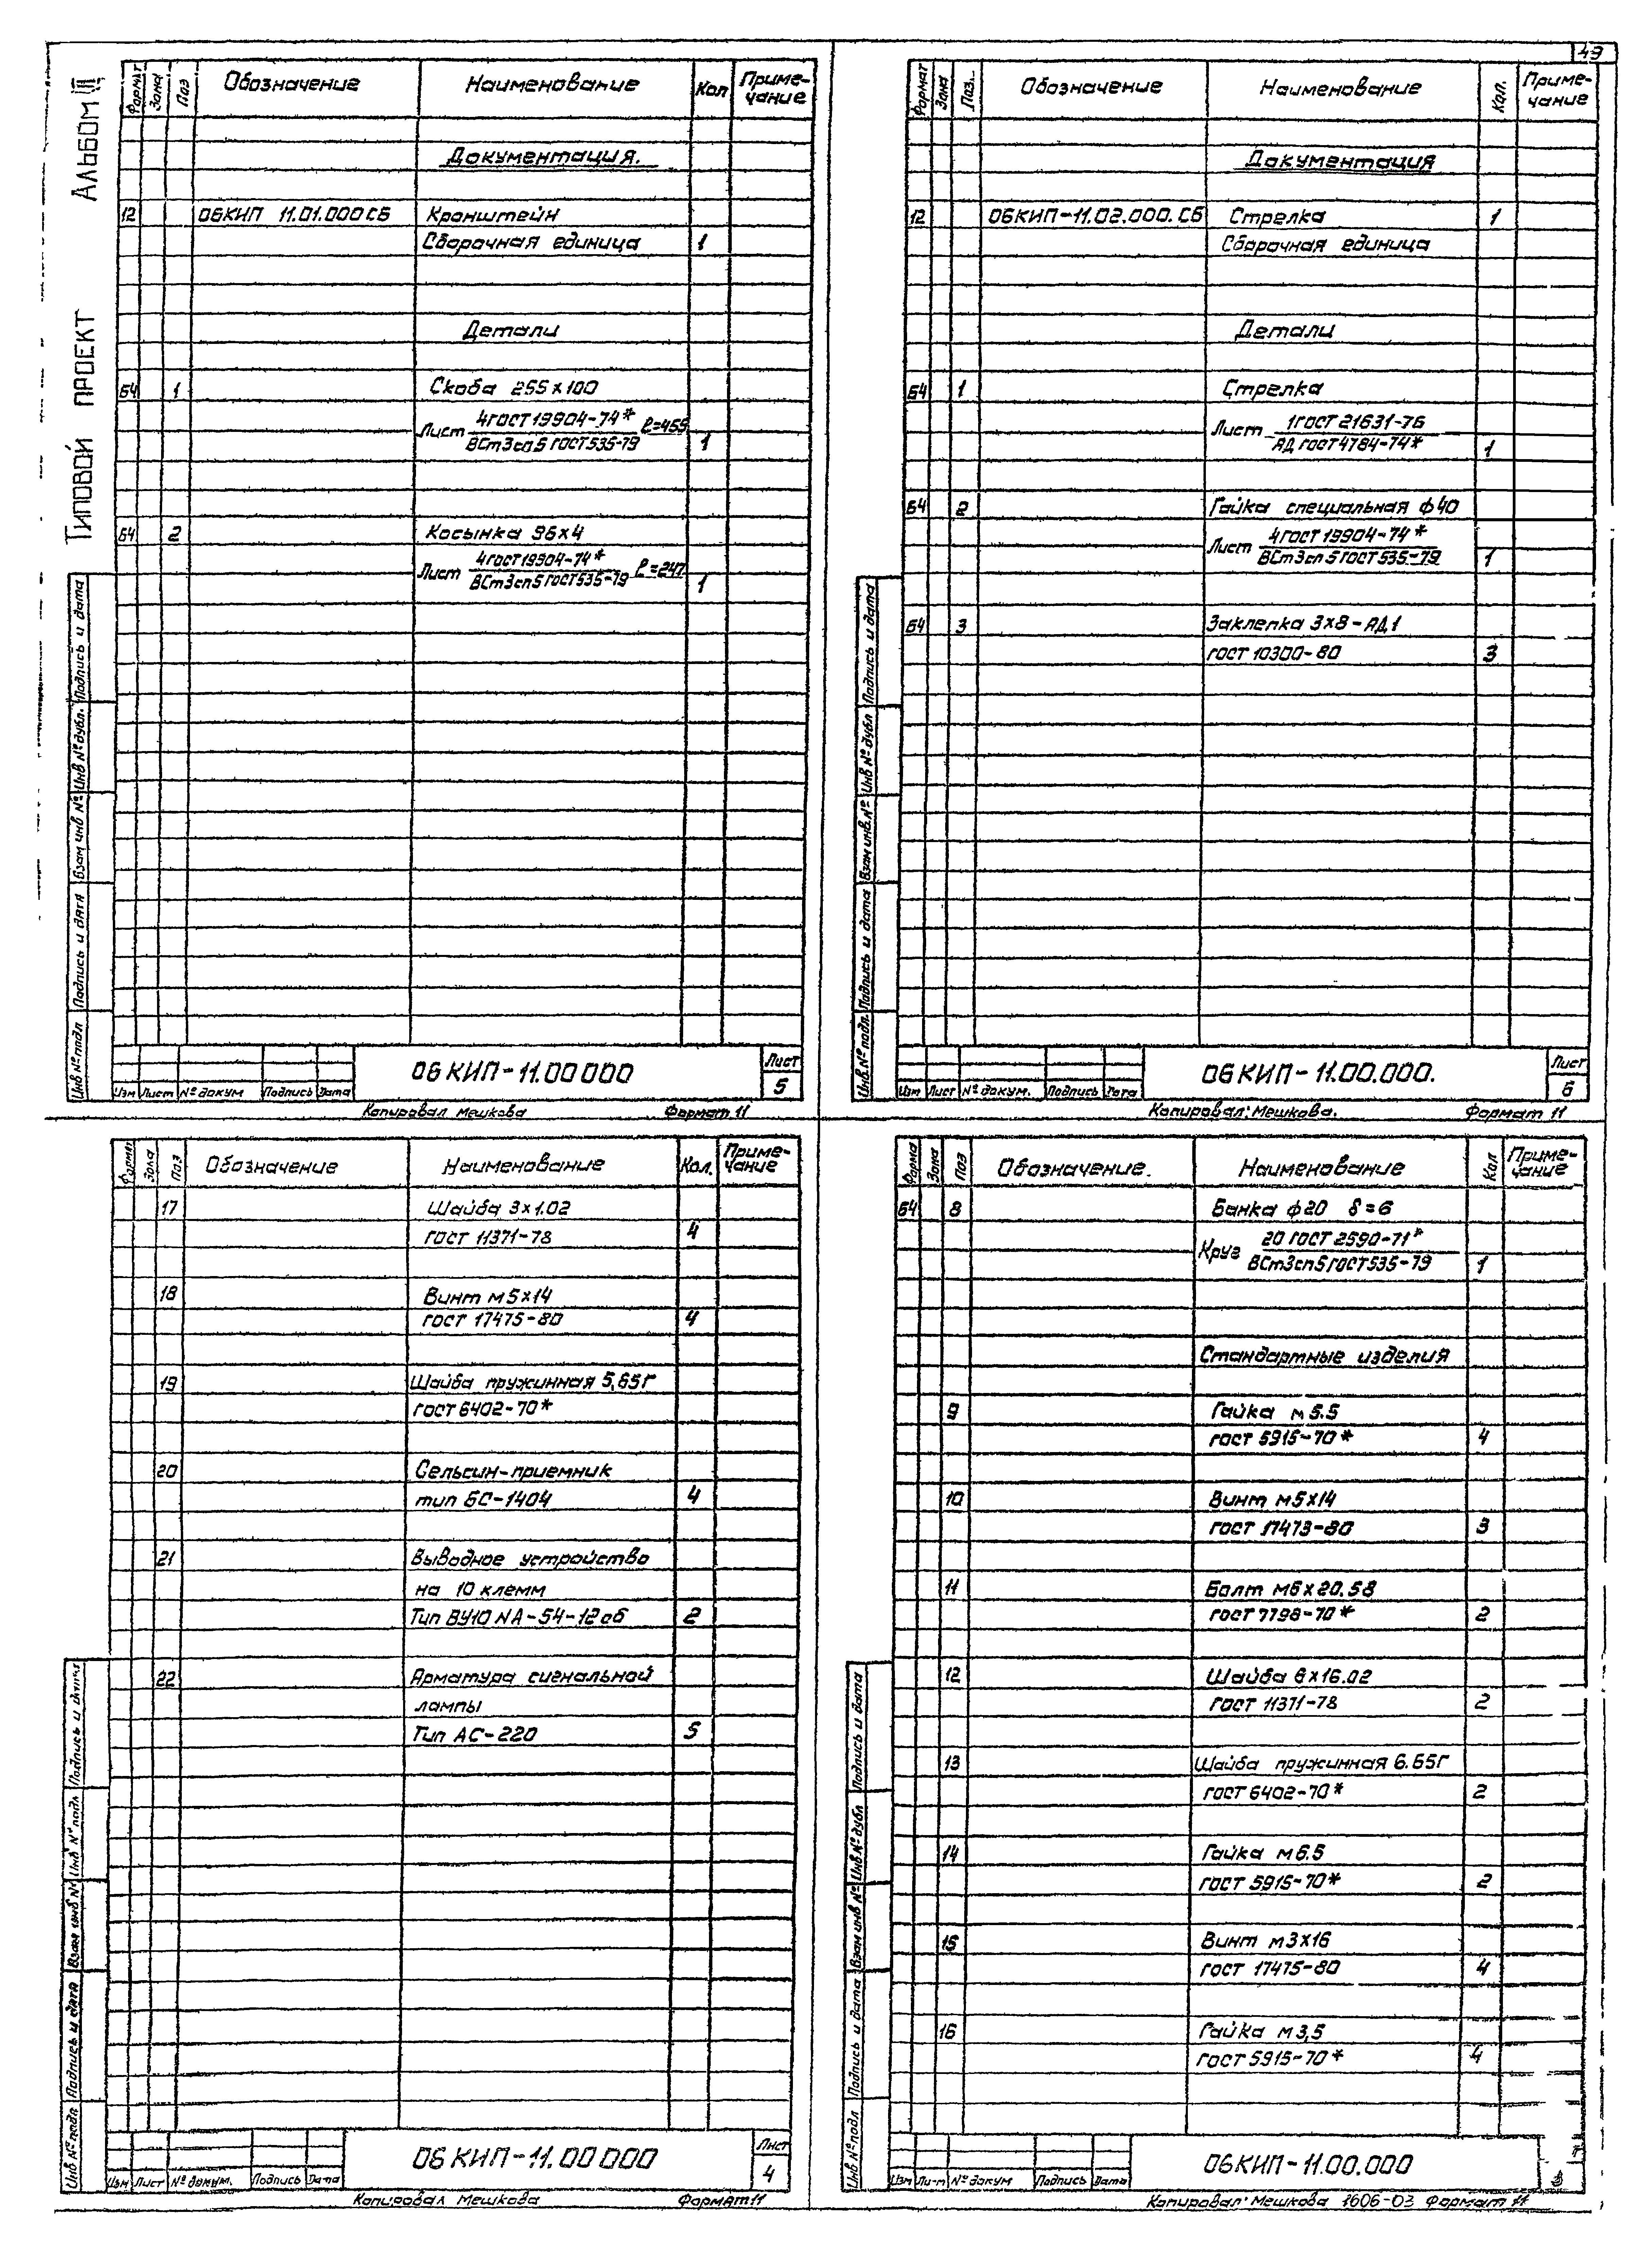 49
Типовой проект Альбом III
Формат Зона Поз Обозначение Наименование Кол Приме-
чание
Документация.
12 06КИП 11.01.000СБ Кронштейн
Сборочная единица 1
Детали
Б4 1 Скоба 255х100
Лист 4ГОСТ19904-74* ℓ=455
ВСт3сп5 ГОСТ535-79 1
Б4 2 Косынка 96х4
Лист 4ГОСТ19904-74* ℓ=247
ВСт3сп5ГОСТ535-79 1
Инв № подл Подпись и дата Взам инв № Инв № дубл. Подпись и дата
Изм Лист № докум Подпись Дата
06КИП-11.00 000
Лист
5
Копировал Мешкова Формат 11
Формат Зона Поз. Обозначение Наименование Кол. Приме-
чание
Документация
12 06КИП-11.02.000.СБ Стрелка 1
Сборочная единица
Детали
Б4 1 Стрелка
Лист 1ГОСТ21631-76
АД ГОСТ4784-74* 1
Б4 2 Гайка специальная ф40
Лист 4ГОСТ19904-74*
ВСт3сп5ГОСТ535-79 1
Б4 3 Заклепка 3х8-АД1
ГОСТ 10300-80 3
Инв № подл. Подпись и дата Взам инв. № Инв № дубл Подпись и дата
Изм Лист № докум. Подпись Дата
06КИП-11.00.000.
Лист
6
Копировал: Мешкова. Формат 11
Форм Зона Поз Обозначение Наименование Кол. Приме-
чание
17 Шайба 3х1.02
ГОСТ 11371-78 4
18 Винт м5х14
ГОСТ 17475-80 4
19 Шайба пружинная 5,65Г
ГОСТ6402-70*
20 Сельсин-приемник
тип БС-1404 4
21 Выводное устройство
на 10 клемм
Тип ВУ10 NА-54-12об 2
22 Арматура сигнальной
лампы
Тип АС-220 5
Инв № подл Подпись и дата Взам инв № Инв № подл Подпись и дата
Изм Лист № докум. Подпись Дата
06КИП-11.00 000
Лист
4
Копировал Мешкова Формат11
Форма Зона Поз Обозначение. Наименование Кол Приме-
чание
Б4 8 Банка ф20 δ=6
Круг 20 ГОСТ 2590-71*
ВСт3сп5ГОСТ535-79 1
Стандартные изделия
9 Гайка м5.5
ГОСТ 5915-70* 4
10 Винт м5х14
ГОСТ 17473-80 3
11 Болт м6х20.58
ГОСТ 7798-70* 2
12 Шайба 6х16.02
ГОСТ 11371-78 2
13 Шайба пружинная 6.65Г
ГОСТ 6402-70* 2
14 Гайка м6.5
ГОСТ 5915-70* 2
15 Винт м3х16
ГОСТ 17475-80 4
16 Гайка м3,5
ГОСТ5915-70* 4
Инв № подл Подпись и дата Взам инв № Инв № дубл Подпись и дата
Изм Ли-т № докум Подпись Дата
06КИП-11.00.000
Копировал: Мешкова 1606-03 Формат 11